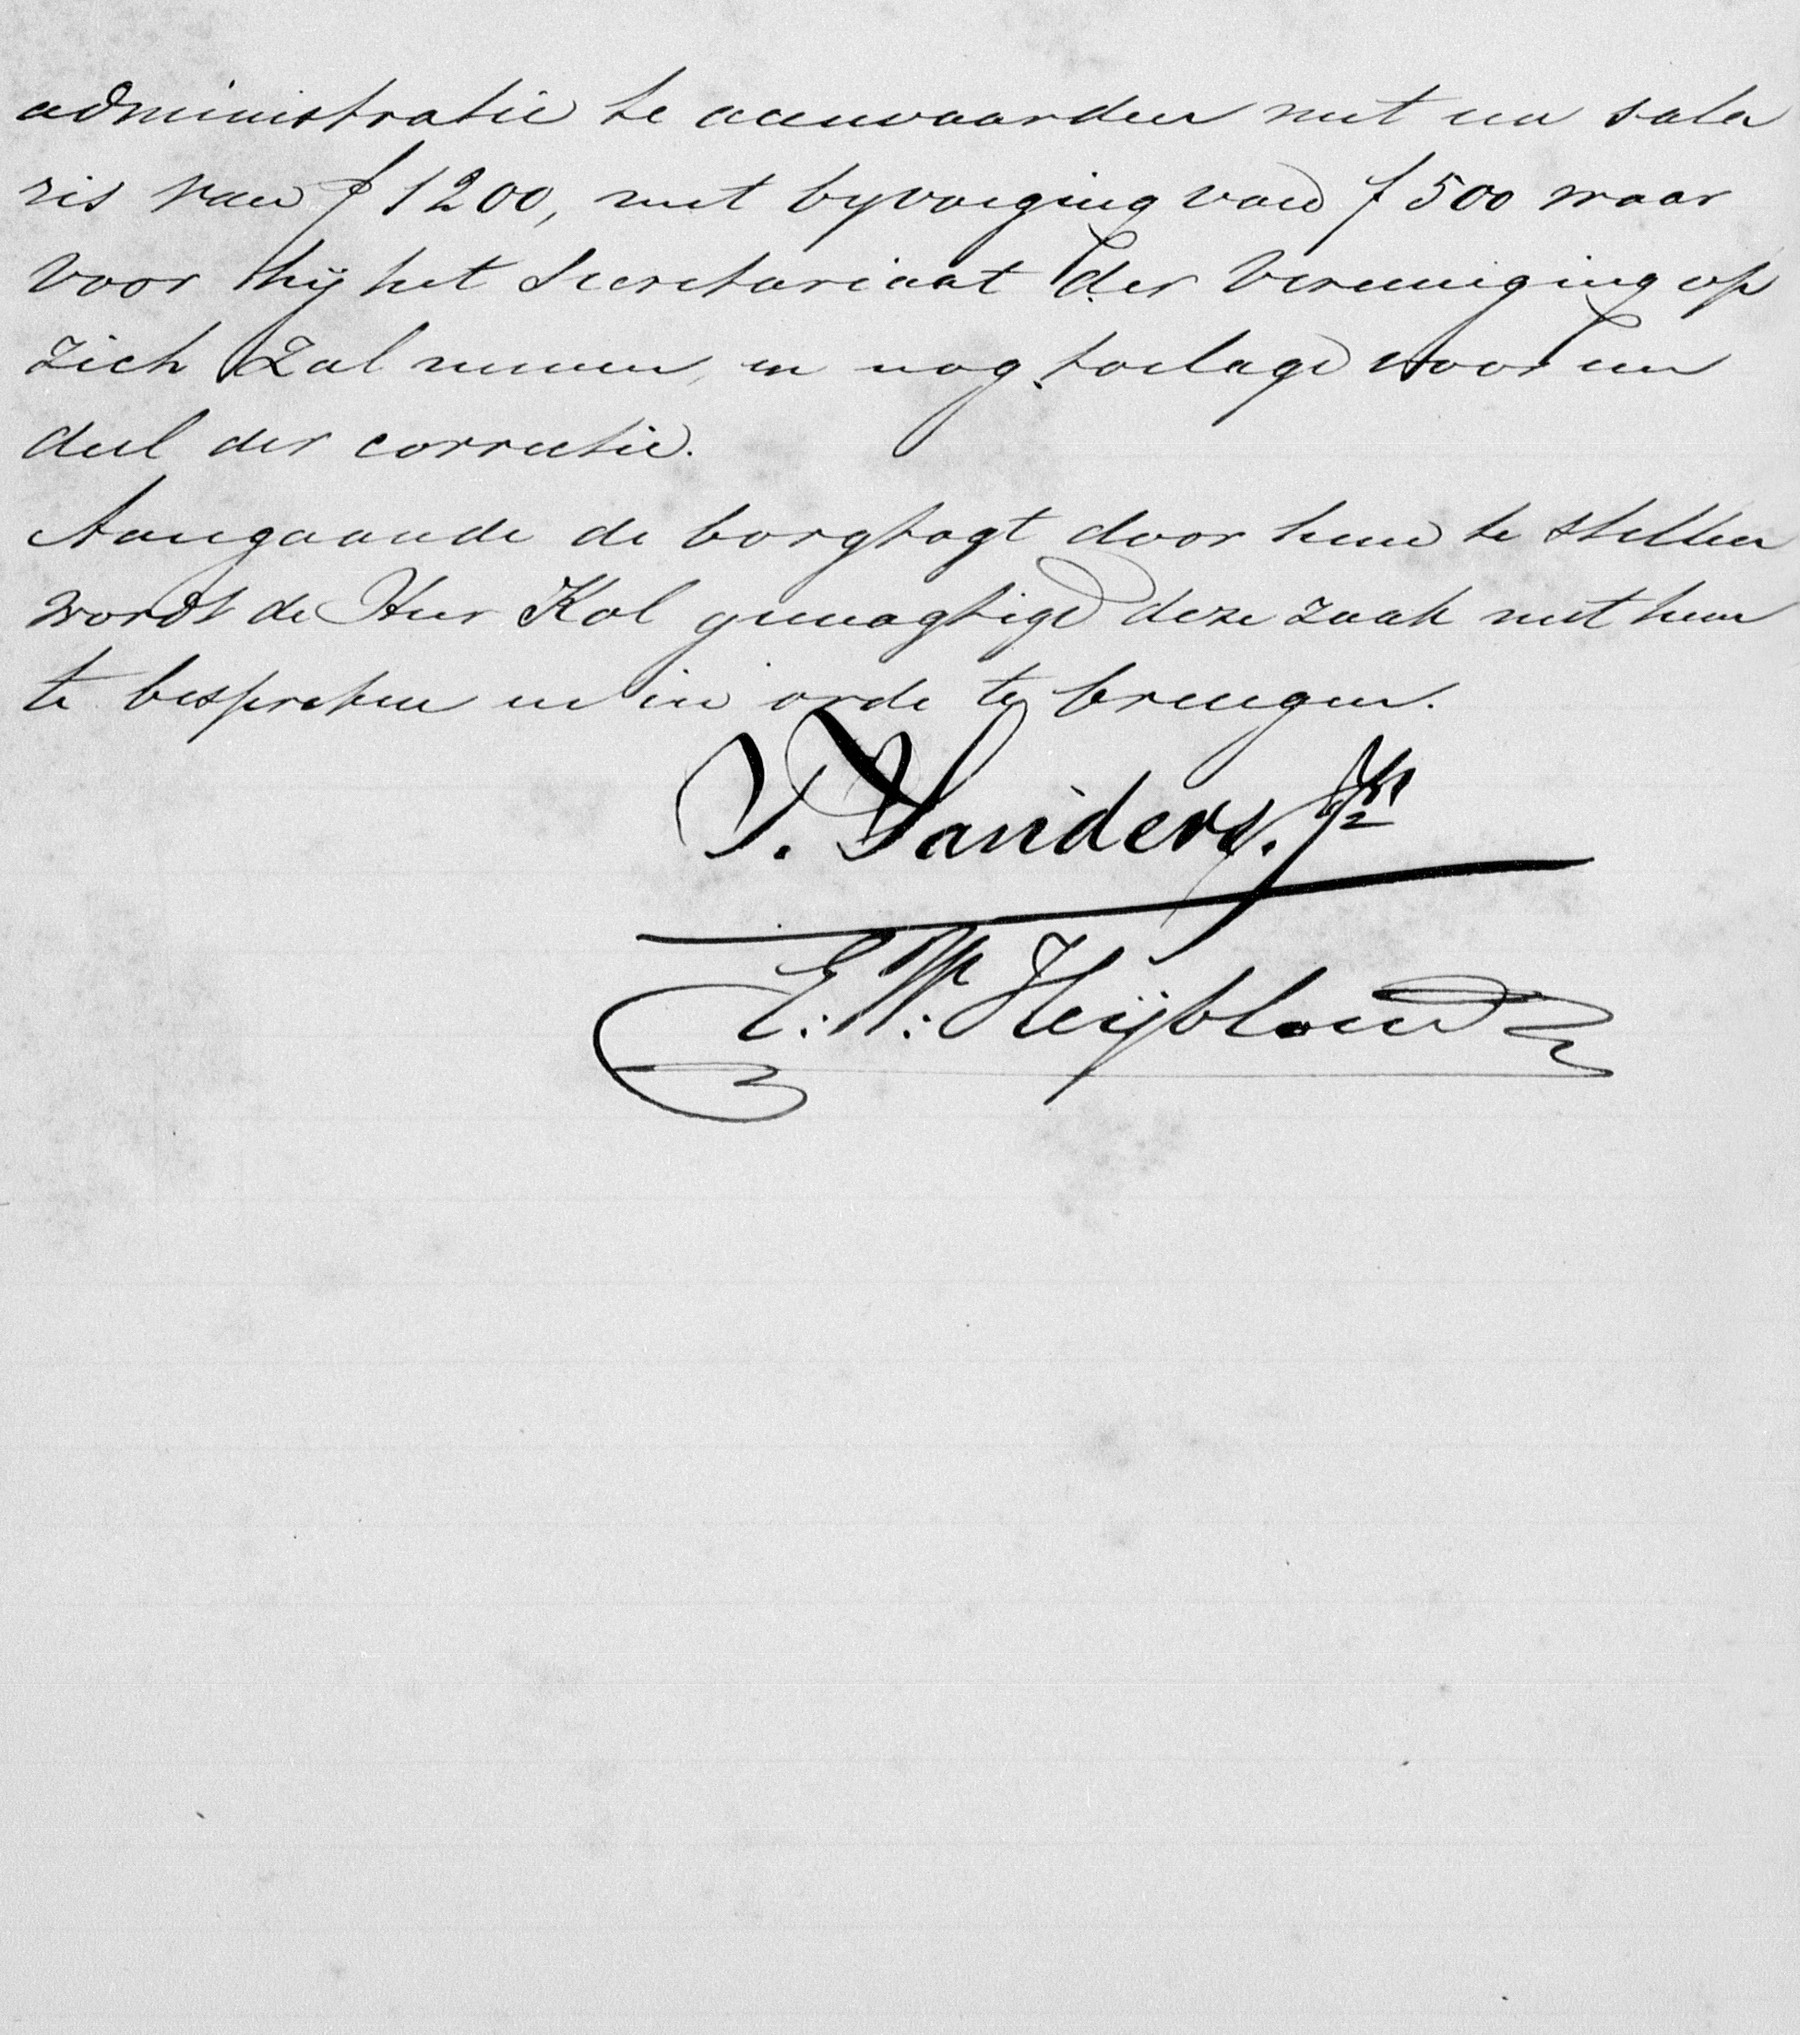 administratie te aanvaarden met een sala
ris van f 1200, met byvoeging van f 500 waar
voor hij het Secretariaat der Vereeniging op
zich zal nemen, en nog toelage voor een
deel der correctie.
Aangaande de borgtogt door hem te stellen
wordt de Heer Kol gemagtigd deze zaak met hem
te bespreken en in orde te brengen.
J. Sanders. Jr
E. W. Heijblom